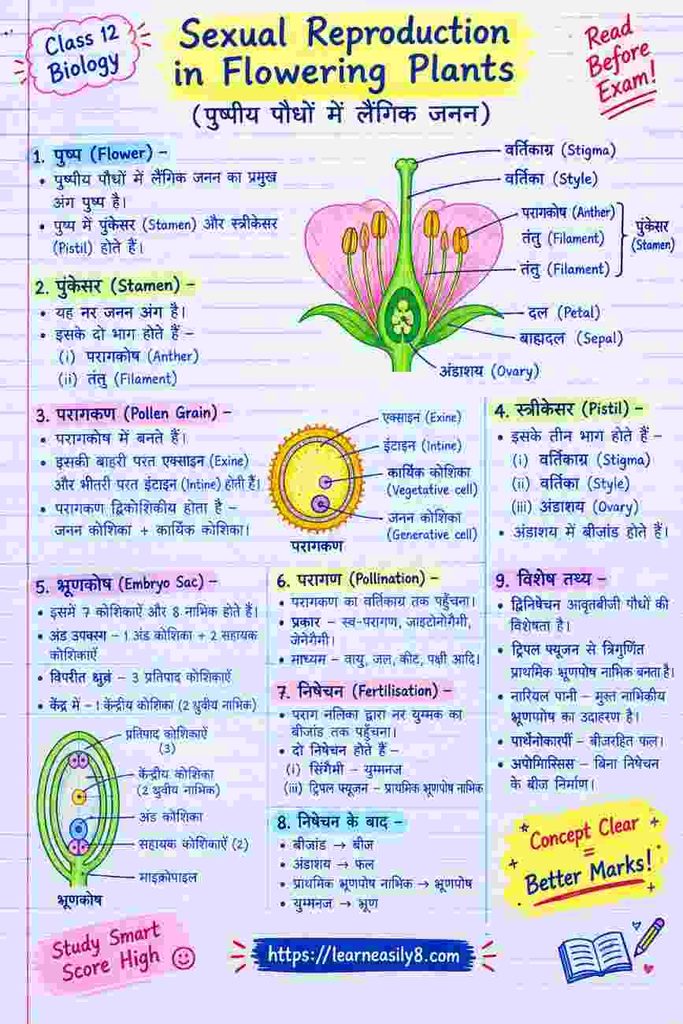 Class 12
Biology
Sexual Reproduction
in Flowering Plants
(पुष्पीय पौधों में लैंगिक जनन)
Read
Before
Exam!
1. पुष्प (Flower) –
• पुष्पीय पौधों में लैंगिक जनन का प्रमुख
अंग पुष्प है।
• पुष्प में पुंकेसर (Stamen) और स्त्रीकेसर
(Pistil) होते हैं।
2. पुंकेसर (Stamen) –
• यह नर जनन अंग है।
• इसके दो भाग होते हैं –
(i) परागकोष (Anther)
(ii) तंतु (Filament)
वर्तिकाग्र (Stigma)
वर्तिका (Style)
परागकोष (Anther)
तंतु (Filament)
तंतु (Filament)
पुंकेसर
(Stamen)
दल (Petal)
बाह्यदल (Sepal)
अंडाशय (Ovary)
3. परागकण (Pollen Grain) –
• परागकोष में बनते हैं।
• इसकी बाहरी परत एक्साइन (Exine)
और भीतरी परत इंटाइन (Intine) होती हैं।
• परागकण द्विकोशिकीय होता है –
जनन कोशिका + कार्यिक कोशिका।
एक्साइन (Exine)
इंटाइन (Intine)
कार्यिक कोशिका
(Vegetative cell)
जनन कोशिका
(Generative cell)
परागकण
4. स्त्रीकेसर (Pistil) –
• इसके तीन भाग होते हैं –
(i) वर्तिकाग्र (Stigma)
(ii) वर्तिका (Style)
(iii) अंडाशय (Ovary)
• अंडाशय में बीजांड होते हैं।
5. भ्रूणकोष (Embryo Sac) –
• इसमें 7 कोशिकाएँ और 8 नाभिक होते हैं।
• अंड उपकरण – 1 अंड कोशिका + 2 सहायक
कोशिकाएँ
• विपरीत – 3 प्रतिपाद कोशिकाएँ
• केंद्र में – 1 केन्द्रीय कोशिका (2 ध्रुवीय नाभिक)
प्रतिपाद कोशिकाएँ
(3)
केंद्रीय कोशिका
(2 ध्रुवीय नाभिक)
अंड कोशिका
सहायक कोशिकाएँ (2)
माइक्रोपाइल
भ्रूणकोष
6. परागण (Pollination) –
• परागकण का वर्तिकाग्र तक पहुँचना।
• प्रकार – स्व-परागण, जाइटोनोगैमी,
जेनेगैमी।
• माध्यम – वायु, जल, कीट, पक्षी आदि।
7. निषेचन (Fertilisation) –
• पराग नलिका द्वारा नर युग्मक का
बीजांड तक पहुँचना।
• दो निषेचन होते हैं –
(i) सिंगैमी – युग्मनज
(iii) ट्रिपल फ्यूजन – प्राथमिक भ्रूणपोष नाभिक
8. निषेचन के बाद –
• बीजांड → बीज
• अंडाशय → फल
• प्राथमिक भ्रूणपोष नाभिक → भ्रूणपोष
• युग्मनज → भ्रूण
9. विशेष तथ्य –
• द्विनिषेचन आवृतबीजी पौधों की
विशेषता है।
• ट्रिपल फ्यूजन से त्रिगुणित
प्राथमिक भ्रूणपोष नाभिक बनता है।
• नारियल पानी – मुक्त नाभिकीय
भ्रूणपोष का उदाहरण है।
• पार्थेनोकार्पी – बीजरहित फल।
• अपोमिक्सिस – बिना निषेचन
के बीज निर्माण।
Concept Clear
=
Better Marks!
Study Smart
Score High
https://learneasily8.com